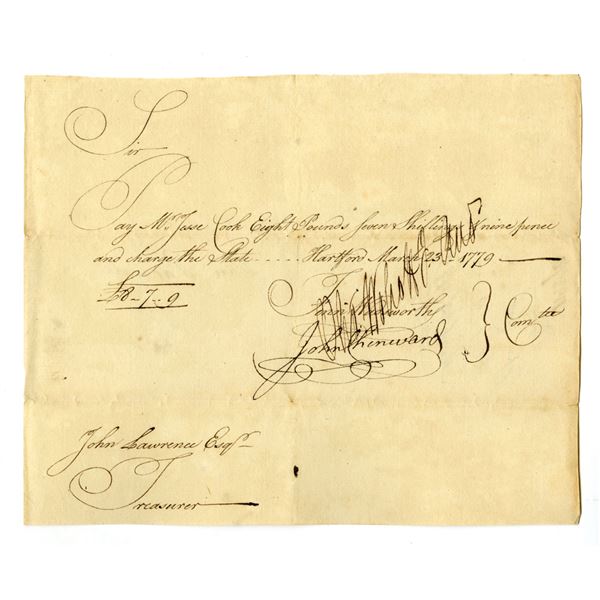 Sir
Pay Mr. Jesse Cook Eight Pounds Seven Shillings & nine pence
and charge the State ..... Hartford March 23d. 1779
£8-7-9
John Chenward
Comtee
John Lawrence Esqr.
Treasurer